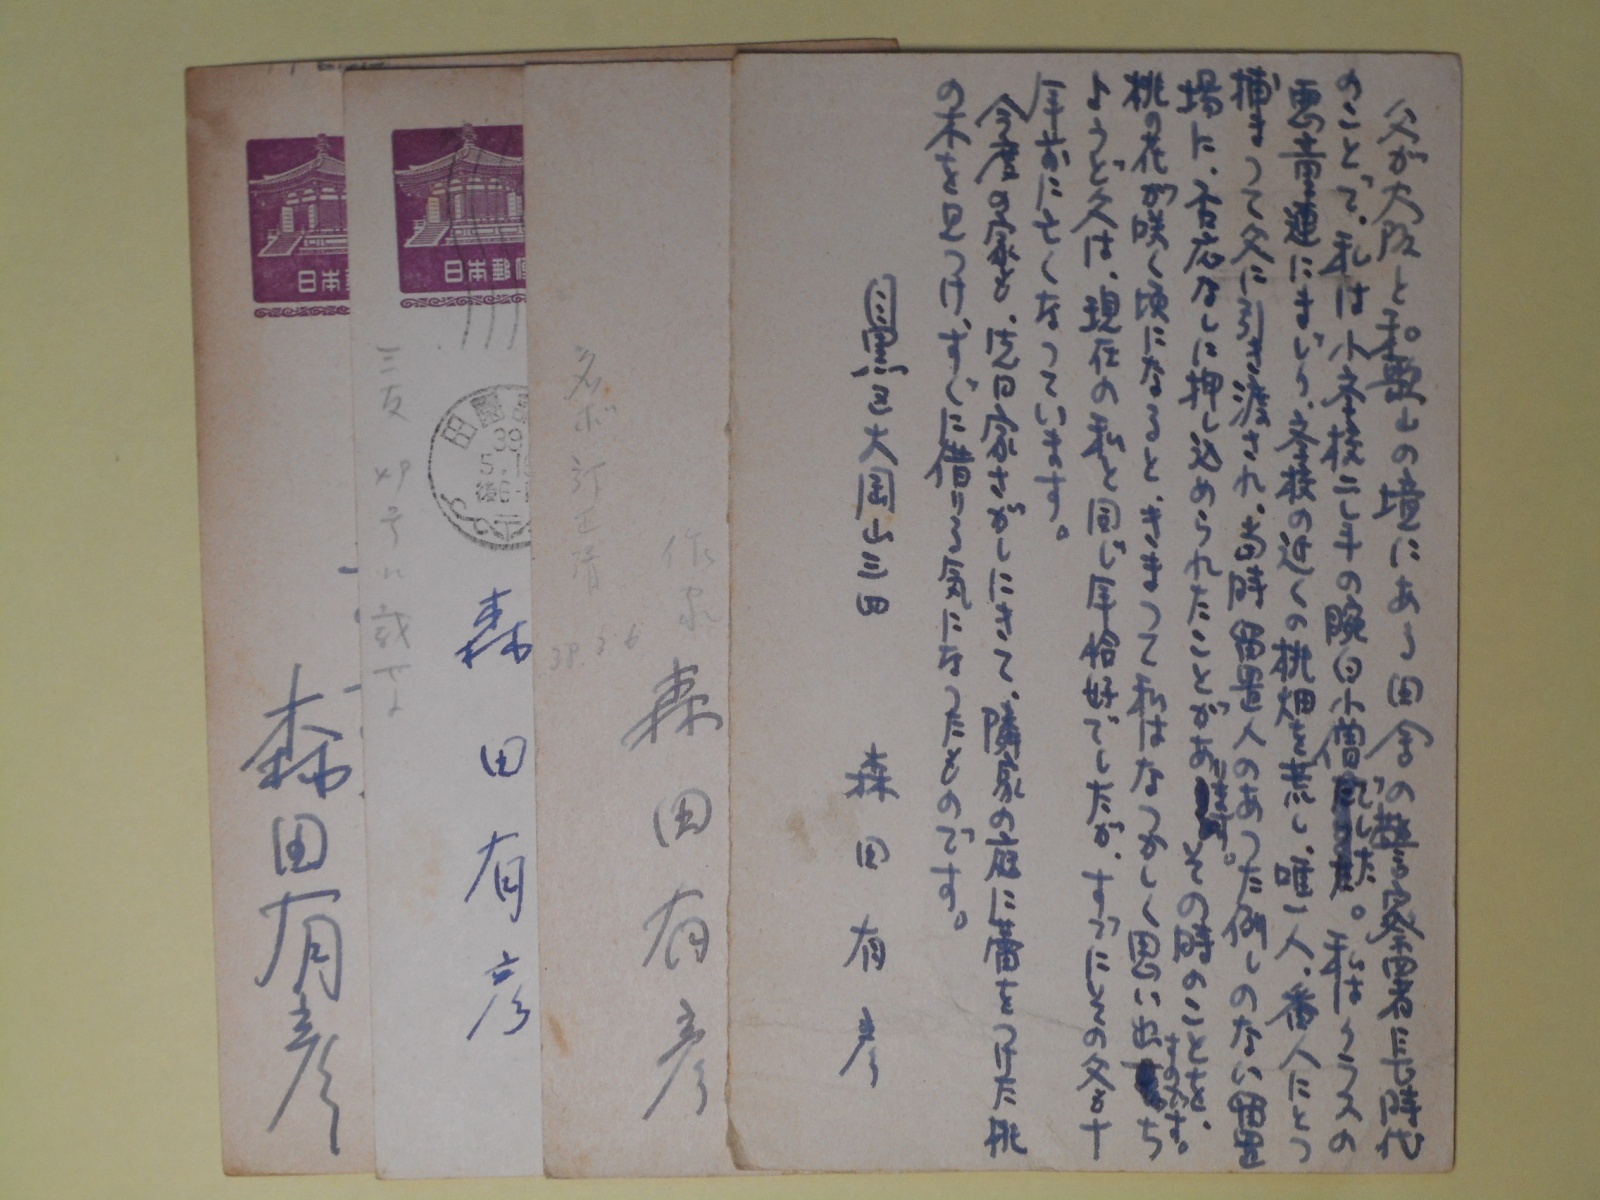 父が大阪と和歌山の境にある田舎の警察署長時代
のことで、私は小学校二年の腕白小僧でした。私はクラスの
悪童連にまじり、学校の近くの桃畑を荒し、唯一人、番人にとっ
捕まって父に引き渡され、当時留置人のあった例しのない留置
場に、否応なしに押し込められたことがあります。その時のことを、
桃の花が咲く頃になると、きまって私はなつかしく思い出すのです。
ちょうど父は、現在の私と同じ年恰好でしたが、すでにその父も十
年前に亡くなっています。
今度の家も、先日家さがしにきて、隣家の庭に蕾をつけた桃
の木を見つけ、すぐに借りる気になったものです。
目黒区大岡山三四
森田有彦
作家
森田有彦
39.3.6
日本郵便
39
5.19
後6-
三友
号に載す
森田有彦
日本
森田有彦